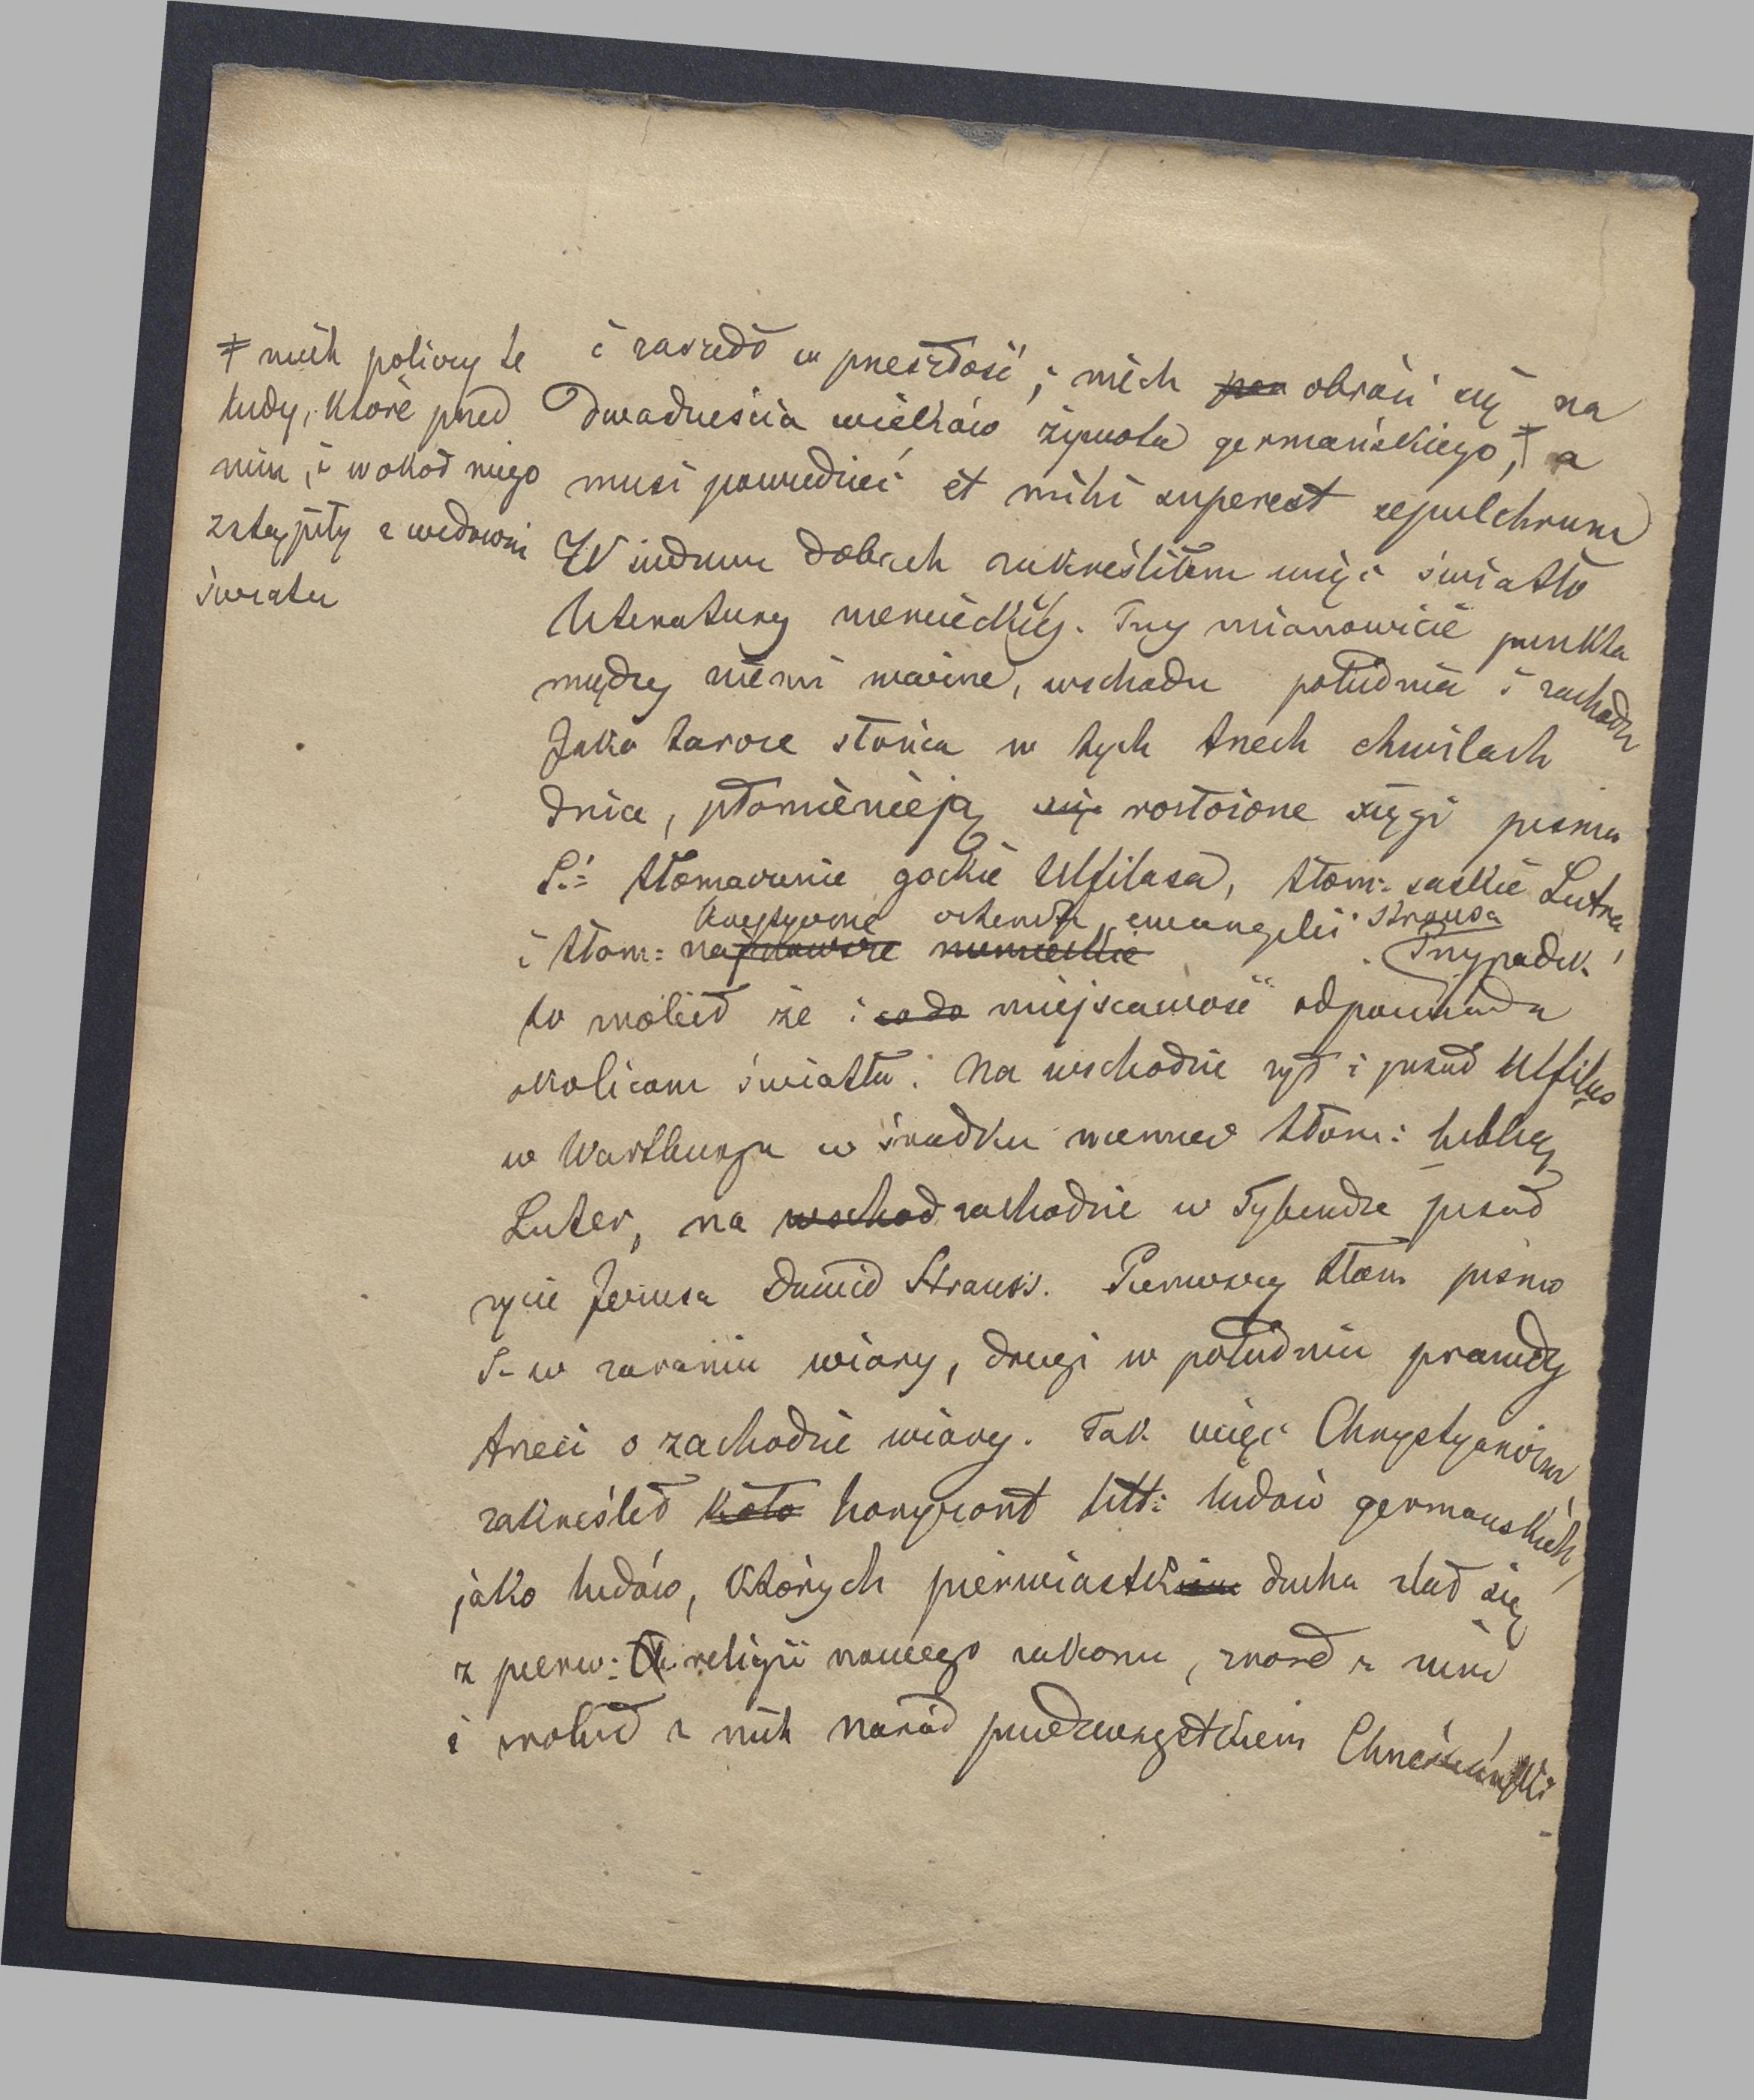 ǂ niech policzy te
ludy, które przed
nim, i wokoł niego
zstąpiły z widowni
świata
i zaszedł w przeszłość, niech prze obróci się na
Dwadzieścia wieków żywota germańskiego, ǂ a
musi powiedzieć et mihi superest sepulchrum
W siedmiu dobach zakreśliłem więc światło
literatury niemieckiej. Trzy mianowicie punkta
między niemi ważne, wschodu południa i zachodu
Jako tarcze słońca w tych trzech chwilach
dnia, płomienieją się rozłożone xięgi pisma
Ś.: tłomaczenie gockie Ulfilasa, tłom: saskie Lutra
krytyczne ewangelii Strausa
i tłom: najnowsze niemieckie Przypadek
to zrobił że i co do miejscawość odpowiada
okolicom światła. Na wschodzie żył i pisał Ulfilas
w Wartburgu w środku Niemiec tłom: biblię
Luter, na wschod zachodzie w Tybendze pisał
życie Jezusa Dawid Strauss. Pierwszy tłom pismo
Ś. w zaraniu wiary, drugi w południu prawdy
trzeci o zachodzie wiary. Tak więc Chrystyanizm
zakreślił koło horyzont litt: ludów germańskich,
jako ludów, których pierwiastek ducha zlał się
z pierw: religii nowego zakonu, zrosł z nim
i zrobił z nich naród Chrześciański